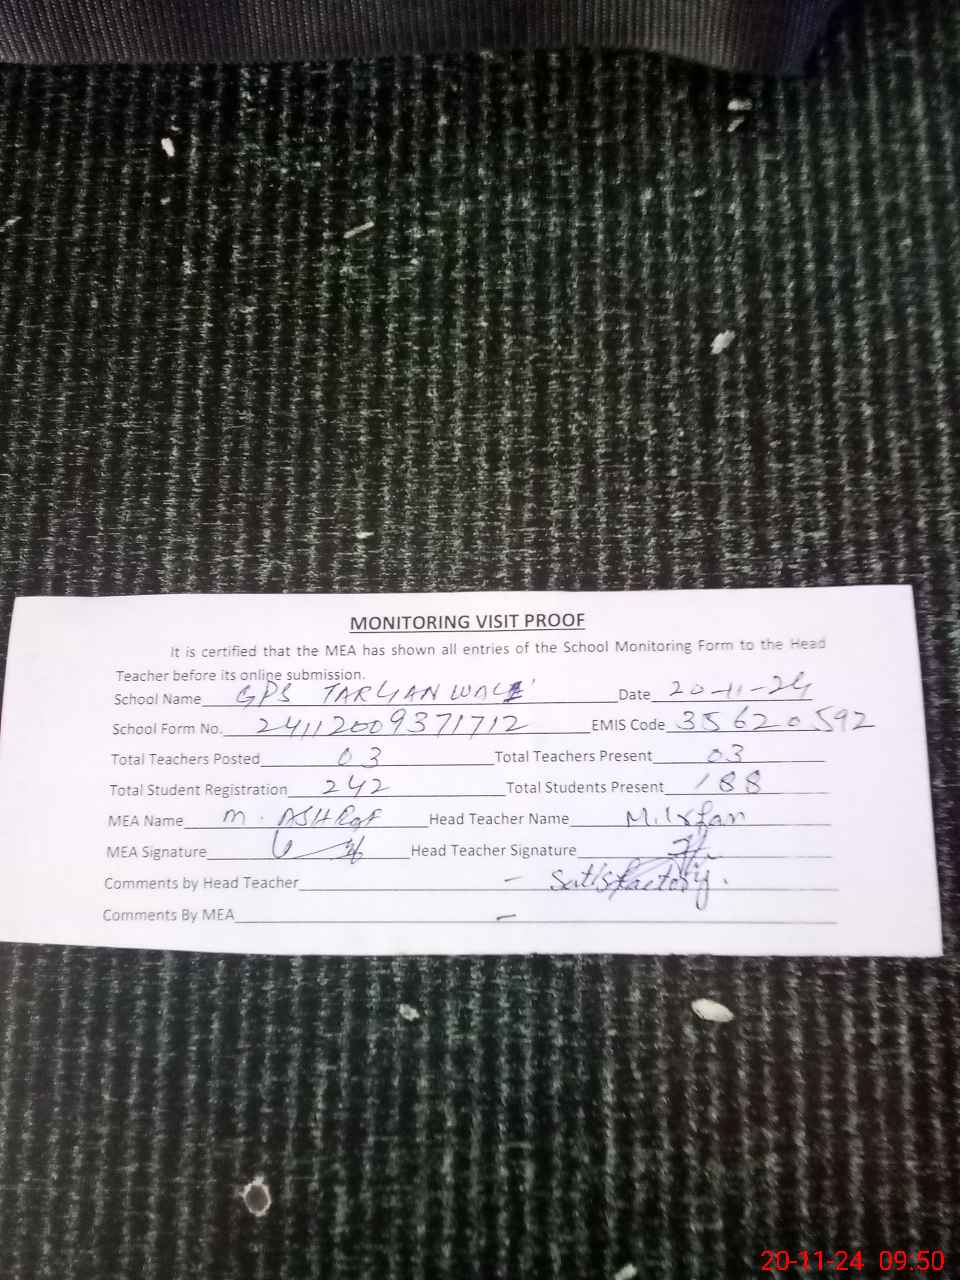 MONITORING VISIT PROOF
It is certified that the MEA has shown all entries of the School Monitoring Form to the Head
Teacher before its online submission.
School Name GPS TARYANWALE Date 20-11-24
School Form No. 24112009371712 EMIS Code 35620592
Total Teachers Posted 03 Total Teachers Present 03
Total Student Registration 242 Total Students Present 188
MEA Name M. ASHRaf Head Teacher Name M.Irfan
MEA Signature Head Teacher Signature
Comments by Head Teacher - Satisfactory.
Comments By MEA -
20-11-24 09:50